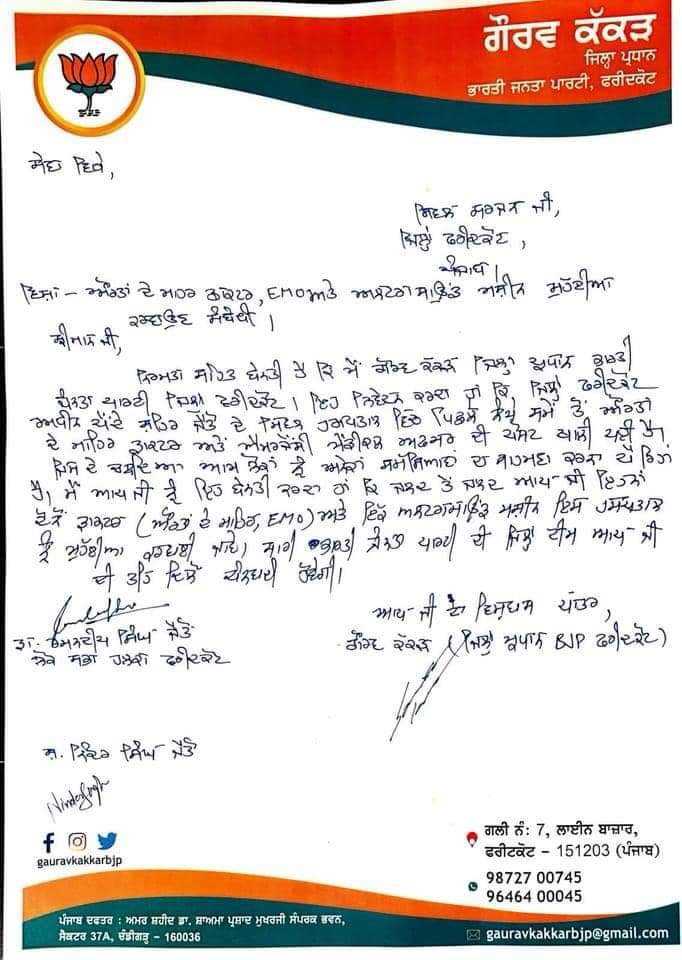 ਗੌਰਵ ਕੱਕੜ
ਜਿਲ੍ਹਾ ਪ੍ਰਧਾਨ
ਭਾਰਤੀ ਜਨਤਾ ਪਾਰਟੀ, ਫਰੀਦਕੋਟ
ਸੇਵਾ ਵਿਖੇ,
ਸਿਵਲ ਸਰਜਨ ਜੀ,
ਜਿਲ੍ਹਾ ਫਰੀਦਕੋਟ,
ਪੰਜਾਬ।
ਵਿਸ਼ਾ - ਔਰਤਾਂ ਦੇ ਮਾਹਰ ਡਾਕਟਰ, EMO ਅਤੇ ਅਲਟਰਾਸਾਊਂਡ ਮਸ਼ੀਨ ਮੁਹੱਈਆ
ਕਰਵਾਉਣ ਸੰਬੰਧੀ।
ਸ਼੍ਰੀਮਾਨ ਜੀ,
ਨਿਮਰਤਾ ਸਹਿਤ ਬੇਨਤੀ ਹੈ ਕਿ ਮੈਂ ਗੌਰਵ ਕੱਕੜ ਜਿਲ੍ਹਾ ਪ੍ਰਧਾਨ ਭਾਰਤੀ
ਜਨਤਾ ਪਾਰਟੀ ਜਿਲ੍ਹਾ ਫਰੀਦਕੋਟ। ਇਹ ਨਿਵੇਦਨ ਕਰਦਾ ਹਾਂ ਕਿ ਜਿਲ੍ਹਾ ਫਰੀਦਕੋਟ
ਅਧੀਨ ਪੈਂਦੇ ਸ਼ਹਿਰ ਜੈਤੋ ਦੇ ਸਿਵਲ ਹਸਪਤਾਲ ਵਿੱਚ ਪਿਛਲੇ ਲੰਬੇ ਸਮੇਂ ਤੋਂ ਔਰਤਾਂ
ਦੇ ਮਾਹਿਰ ਡਾਕਟਰ ਅਤੇ ਐਮਰਜੈਂਸੀ ਮੈਡੀਕਲ ਅਫਸਰ ਦੀ ਪੋਸਟ ਖਾਲੀ ਪਈ ਹੈ।
ਜਿਸ ਦੇ ਚਲਦਿਆ ਆਮ ਲੋਕਾਂ ਨੂੰ ਅਨੇਕਾਂ ਸਮੱਸਿਆਵਾਂ ਦਾ ਸਾਹਮਣਾ ਕਰਨਾ ਪੈ ਰਿਹਾ
ਹੈ, ਮੈਂ ਆਪ ਜੀ ਨੂੰ ਇਹ ਬੇਨਤੀ ਕਰਦਾ ਹਾਂ ਕਿ ਜਲਦ ਤੋਂ ਜਲਦ ਆਪ ਜੀ ਇਹਨਾਂ
ਦੋਨੋਂ ਡਾਕਟਰ (ਔਰਤਾਂ ਦੇ ਮਾਹਿਰ, EMO) ਅਤੇ ਇੱਕ ਅਲਟਰਾਸਾਊਂਡ ਮਸ਼ੀਨ ਇਸ ਹਸਪਤਾਲ
ਨੂੰ ਮੁਹੱਈਆ ਕਰਵਾਈ ਜਾਵੇ। ਸਾਰੀ ਭਾਰਤੀ ਜਨਤਾ ਪਾਰਟੀ ਦੀ ਜਿਲ੍ਹਾ ਟੀਮ ਆਪ ਜੀ
ਦੀ ਤਹਿ ਦਿਲੋਂ ਧੰਨਵਾਦੀ ਹੋਵੇਗੀ।
ਆਪ ਜੀ ਦਾ ਵਿਸ਼ਵਾਸ ਪਾਤਰ,
ਡਾ. ਰਮਨਦੀਪ ਸਿੰਘ ਜੈਤੋ
ਗੌਰਵ ਕੱਕੜ (ਜਿਲ੍ਹਾ ਪ੍ਰਧਾਨ BJP ਫਰੀਦਕੋਟ)
ਲੋਕ ਸਭਾ ਹਲਕਾ ਫਰੀਦਕੋਟ
ਸ. ਨਿੰਦਰ ਸਿੰਘ ਜੈਤੋ
gauravkakkarbjp
ਗਲੀ ਨੰ: 7, ਲਾਈਨ ਬਾਜ਼ਾਰ,
ਫਰੀਦਕੋਟ - 151203 (ਪੰਜਾਬ)
98727 00745
96464 00045
ਪੰਜਾਬ ਦਫਤਰ : ਅਮਰ ਸ਼ਹੀਦ ਡਾ. ਸ਼ਾਅਮਾ ਪ੍ਰਸ਼ਾਦ ਮੁਖਰਜੀ ਸੰਪਰਕ ਭਵਨ,
ਸੈਕਟਰ 37A, ਚੰਡੀਗੜ੍ਹ - 160036
gauravkakkarbjp@gmail.com